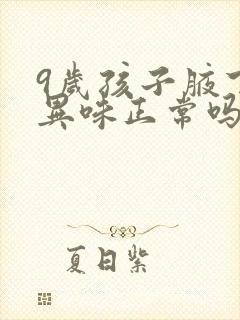 9歲孩子腋下
異味正常吗
夏日紫